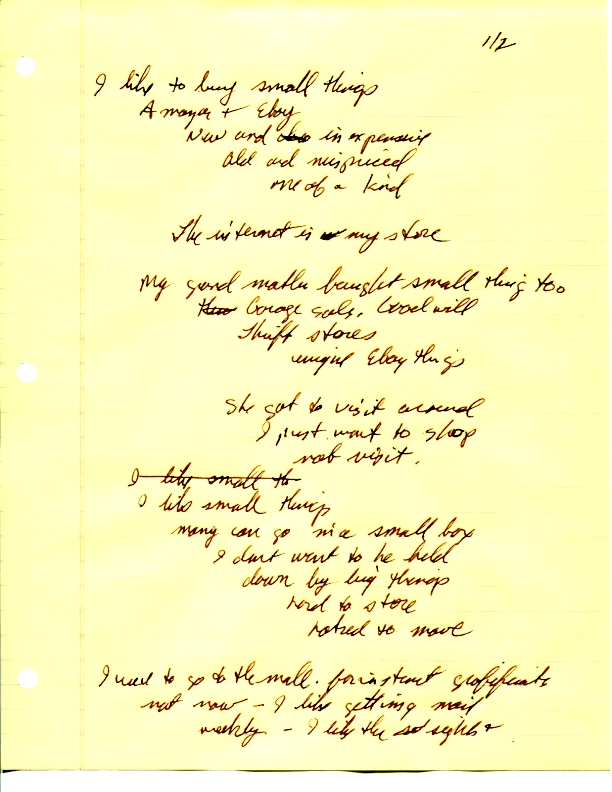 1/2
I like to buy small things
Amazon + Ebay
New and also in expensive
Old and mispriced
one of a kind
The internet is my store
My grand mother bought small thing too
Garage sale, Goodwill
Thrift stores
unique Ebay things
She got to visit around
I just want to shop
not visit.
I like small th
I like small things
many can go in a small box
I dont want to be held
down by big things
hard to store
hatred to move
I used to go to the mall. for instant
not now - I like getting mail
weekly - I like the sights +